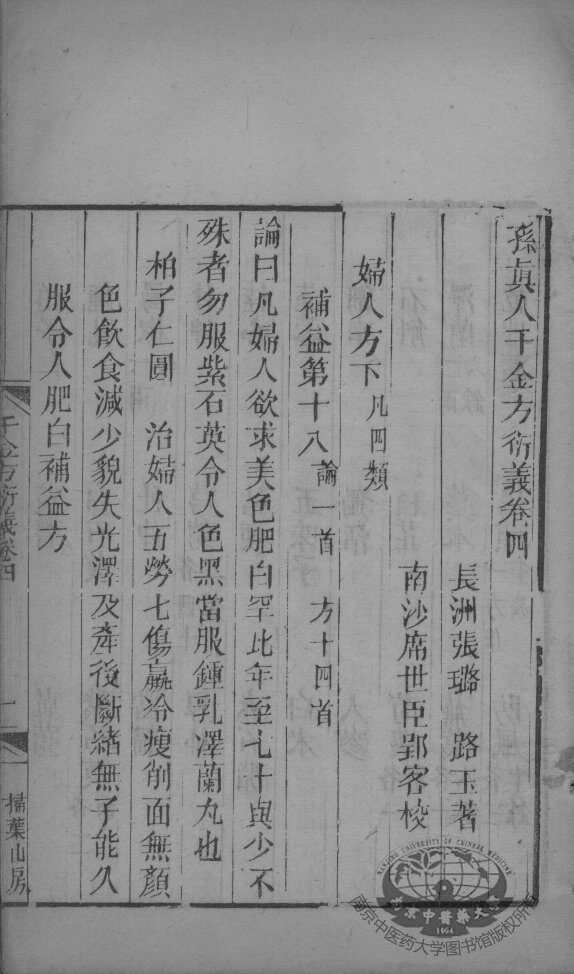 孫眞人千金方衍義卷四
長洲張璐 路玉著
南沙席世臣郢客校
婦人方下凡四類
補益第十八 論一首 方十四首
論曰凡婦人欲求美色肥白罕比年至七十與少不
殊者勿服紫石英令人色黑當服鍾乳澤蘭丸也
柏子仁圓 治婦人五勞七傷羸冷瘦削面無顏
色飲食減少貌失光澤及產後斷緒無子能久
服令人肥白補益方
千金方衍義卷四
一
掃葉山房
NANJING UNIVERSITY OF CHINESE MEDICINE
南京中醫藥大學
1954
南京中医药大学图书馆版权所有